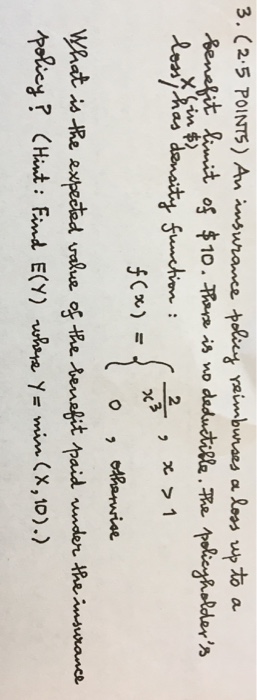 3. (2.5 POINTS) An insurance policy reimburses a loss up to a
benefit limit of $10. There is no deductible. The policyholder's
loss, X (in $) has density function :
f(x) = { 2/x³ , x > 1
0 , otherwise
What is the expected value of the benefit paid under the insurance
policy? (Hint: Find E(Y) where Y = min (X, 10).)